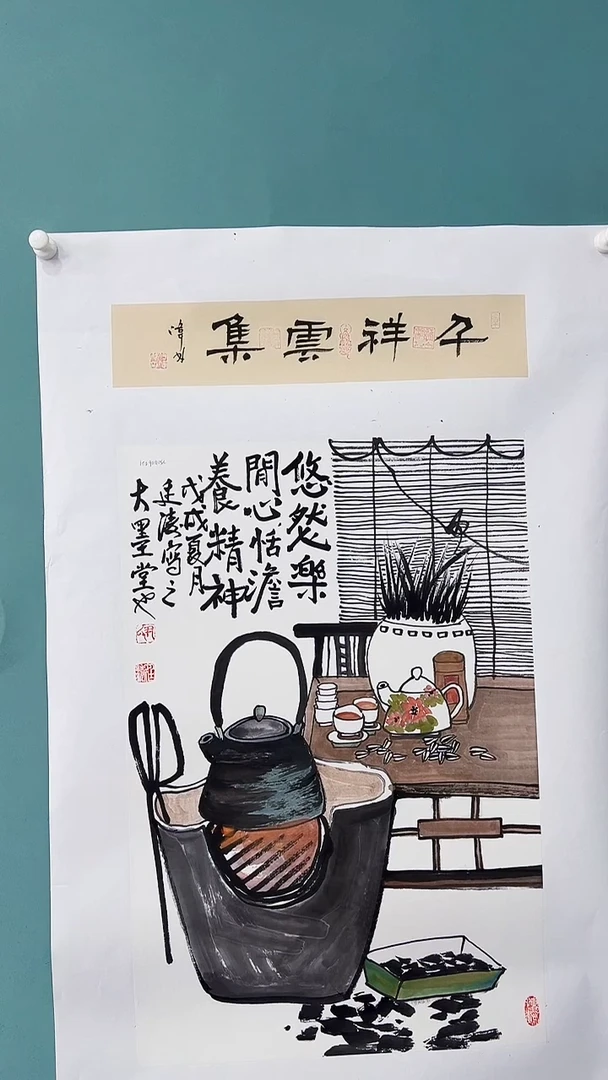 千祥雲集
悠然樂
閒心恬澹
養精神
戊戌夏月
寫之
大墨堂也